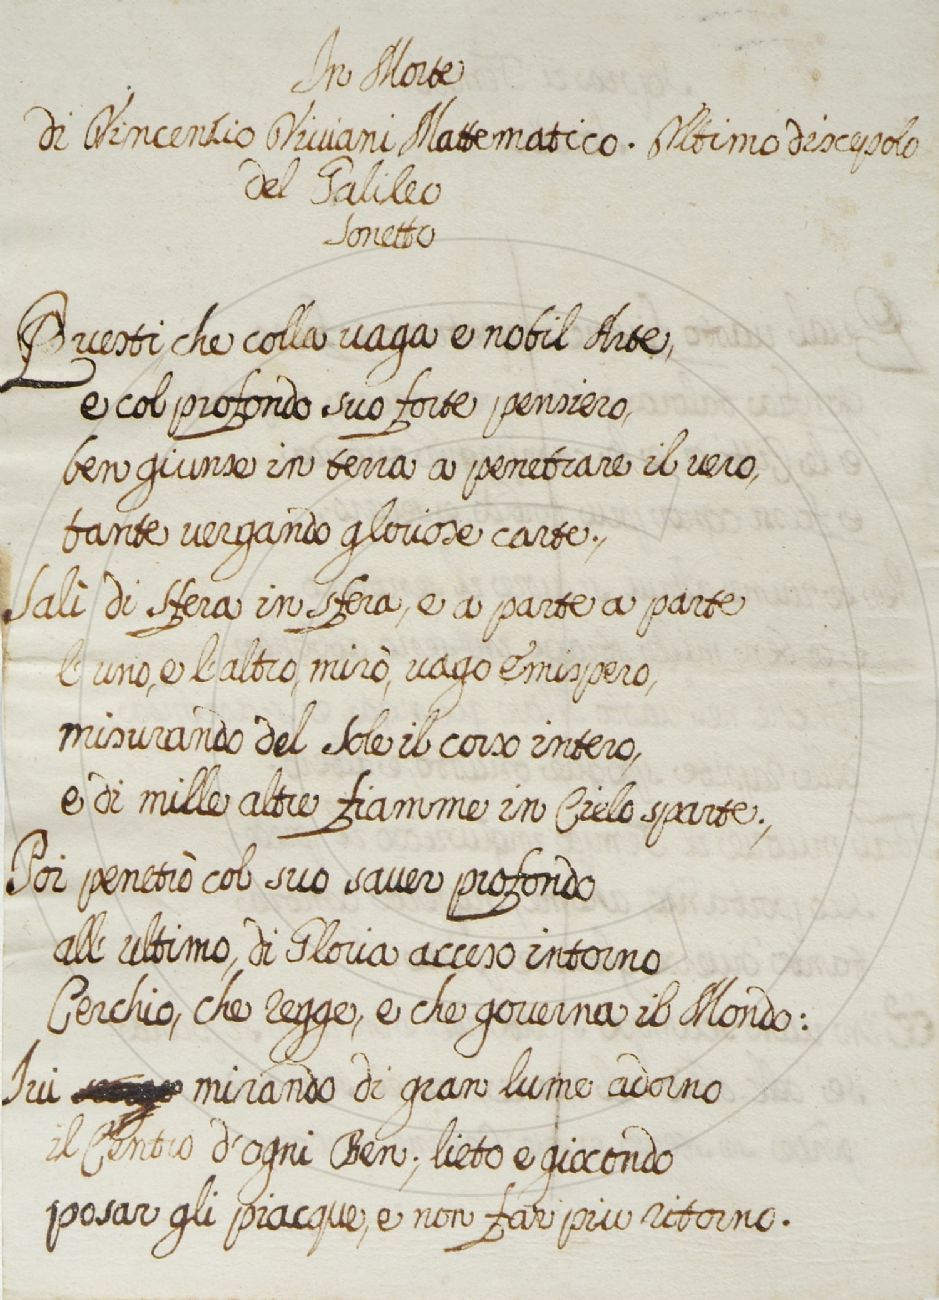 In Morte
di Vincentio Viviani Mattematico. Ultimo discepolo
del Galileo
Sonetto
Questi che colla vaga e nobil Arte,
e col profondo suo forte pensiero,
ben giunse in terra a penetrare il vero,
tante vergando gloriose carte.,
Salì di sfera in sfera, e a parte a parte
l'uno, e l'altro, mirò, vago Emispero,
misurando del Sole il corso intero,
e di mille altre fiamme in Cielo sparte.,
Poi penetrò col suo saver profondo
all'ultimo, di Gloria acceso intorno
Cerchio, che regge, e che governa il Mondo:
Ivi mirando di gran lume adorno
il Centro d'ogni Ben; lieto e giocondo
posar gli piacque, e non far più ritorno.